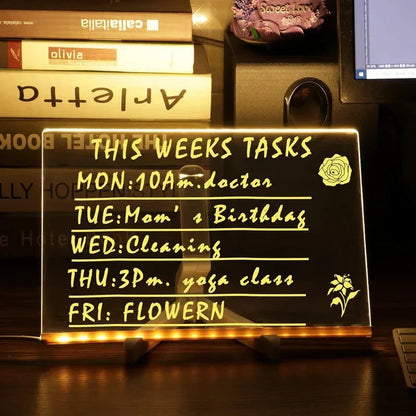 callaitalia
callaitalia
olivia
Arletta
THE HOTEL BOOK
Sweet Love
THIS WEEKS TASKS
MON:10Am.doctor
TUE:Mom's Birthdag
WED:Cleaning
THU:3Pm. yoga class
FRI: FLOWERN